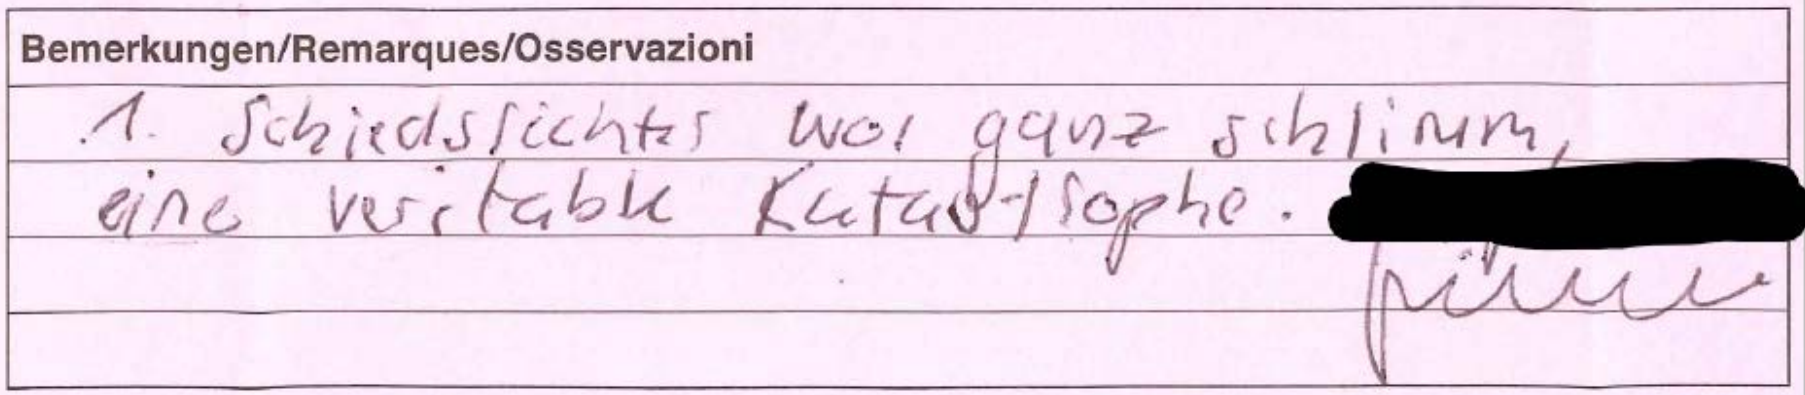 Bemerkungen/Remarques/Osservazioni
1. Schiedsrichter war ganz schlimm,
eine veritable Katastrophe.